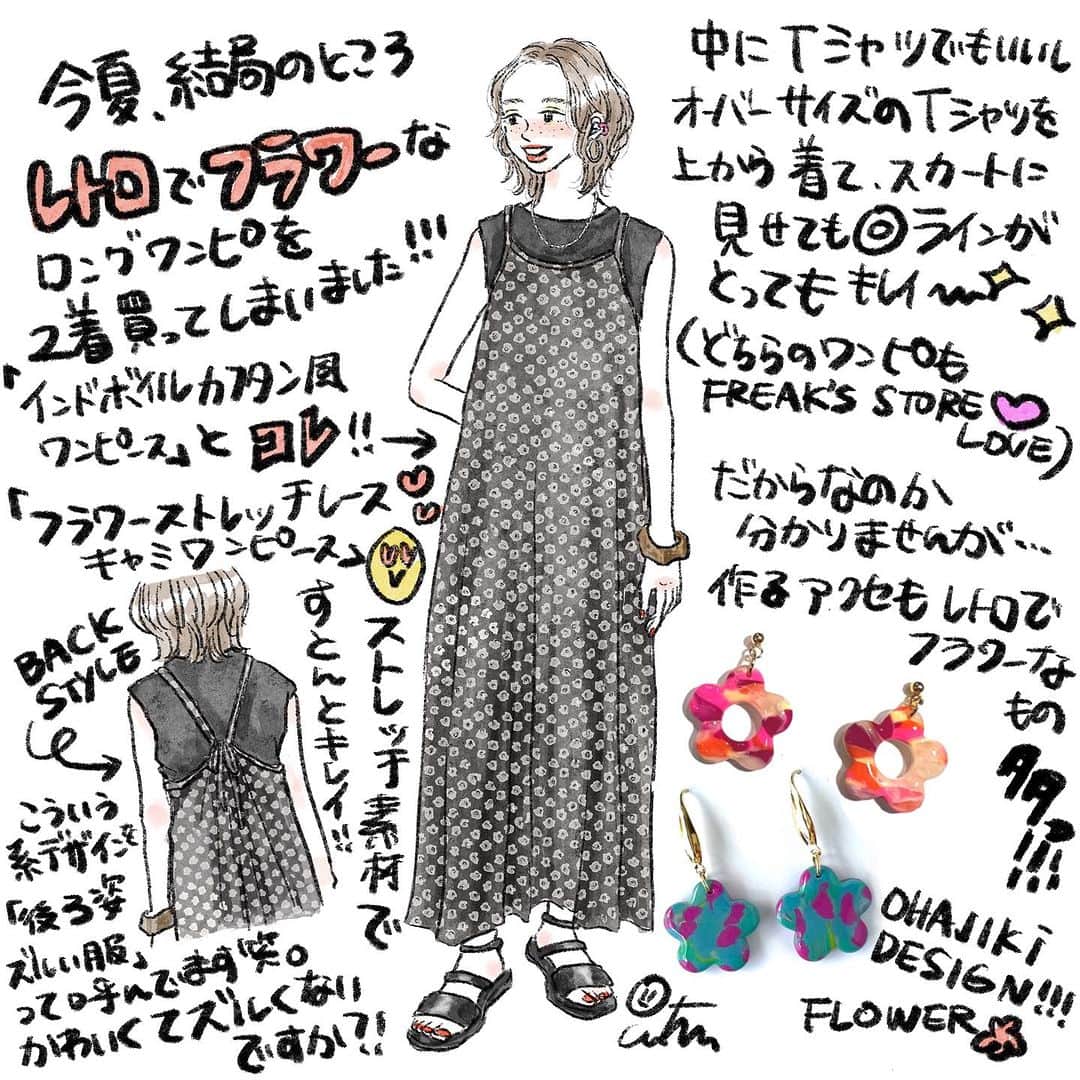 今夏、結局のところ
レトロでフラワーな
ロングワンピを
2着買ってしまいました!!!
「インドボイルカフタン風
ワンピース」と コレ!!→
「フラワーストレッチレース
キャミワンピース」
ストレッチ素材で
すとんとキレイ!!
BACK
STYLE
こういう
系デザインを
「後ろ姿
ズルい服」
って呼んでます笑。
かわいくてズルくない
ですか?!
中にTシャツでもいいし
オーバーサイズのTシャツを
上から着て、スカートに
見せても◎ラインが
とってもキレイ〜
(どちらのワンピも
FREAK'S STORE
LOVE)
だからなのか
分かりませんが…
作るアクセもレトロで
フラワーな
もの
OHAJIKI
DESIGN!!!
FLOWER